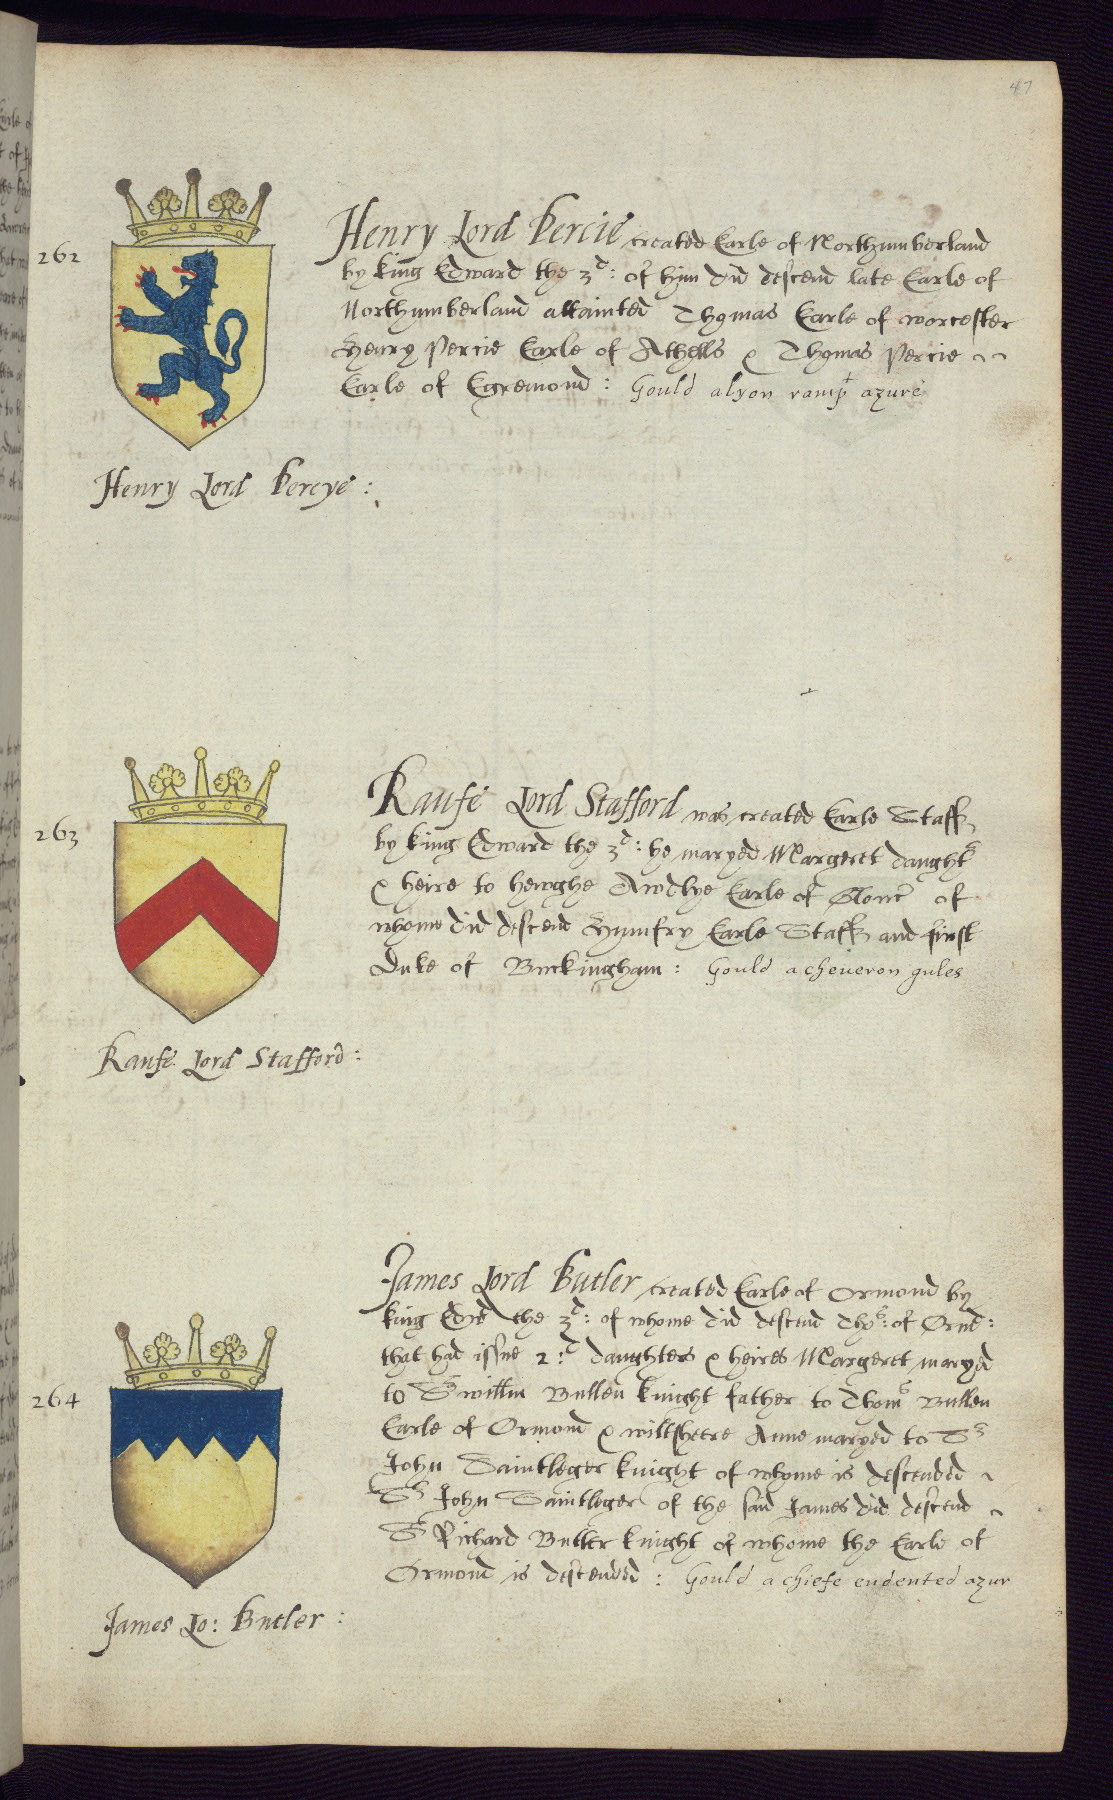 47
262
Henry Lord Percie created Earle of Northumberland
by king Edward the 3d: of hym did descend late Earle of
Northumberland attainted Thomas Earle of worcester
Henry Percie Earle of Athells & Thomas Percie
Earle of Egremond: Gould a lyon rampt azure
Henry Lord Percye:
263
Raufe Lord Stafford was created Earle Staff
by king Edward the 3d: he maryed Margeret daught
& heire to hewghe Awdlye Earle of Glouc of
whome did descend Humfry Earle Staff and first
Duke of Buckingham: Gould a cheueron gules
Raufe Lord Stafford:
264
James Lord Butler created Earle of Ormond by
king Edwd the 3d: of whome did descend Tho: of Ormd:
that had issue 2: daughters & heires Margeret maryed
to Sr willm Bullen knight father to Thom Bullen
Earle of Ormond & wiltsheere Anne maryed to Sr
John Saintleger knight of whome is descended
Sr John Saintleger of the said James did descend
Sr Richard Butler knight of whome the Earle of
Ormond is descended: Gould a chiefe endented azur
James Lo: Butler: